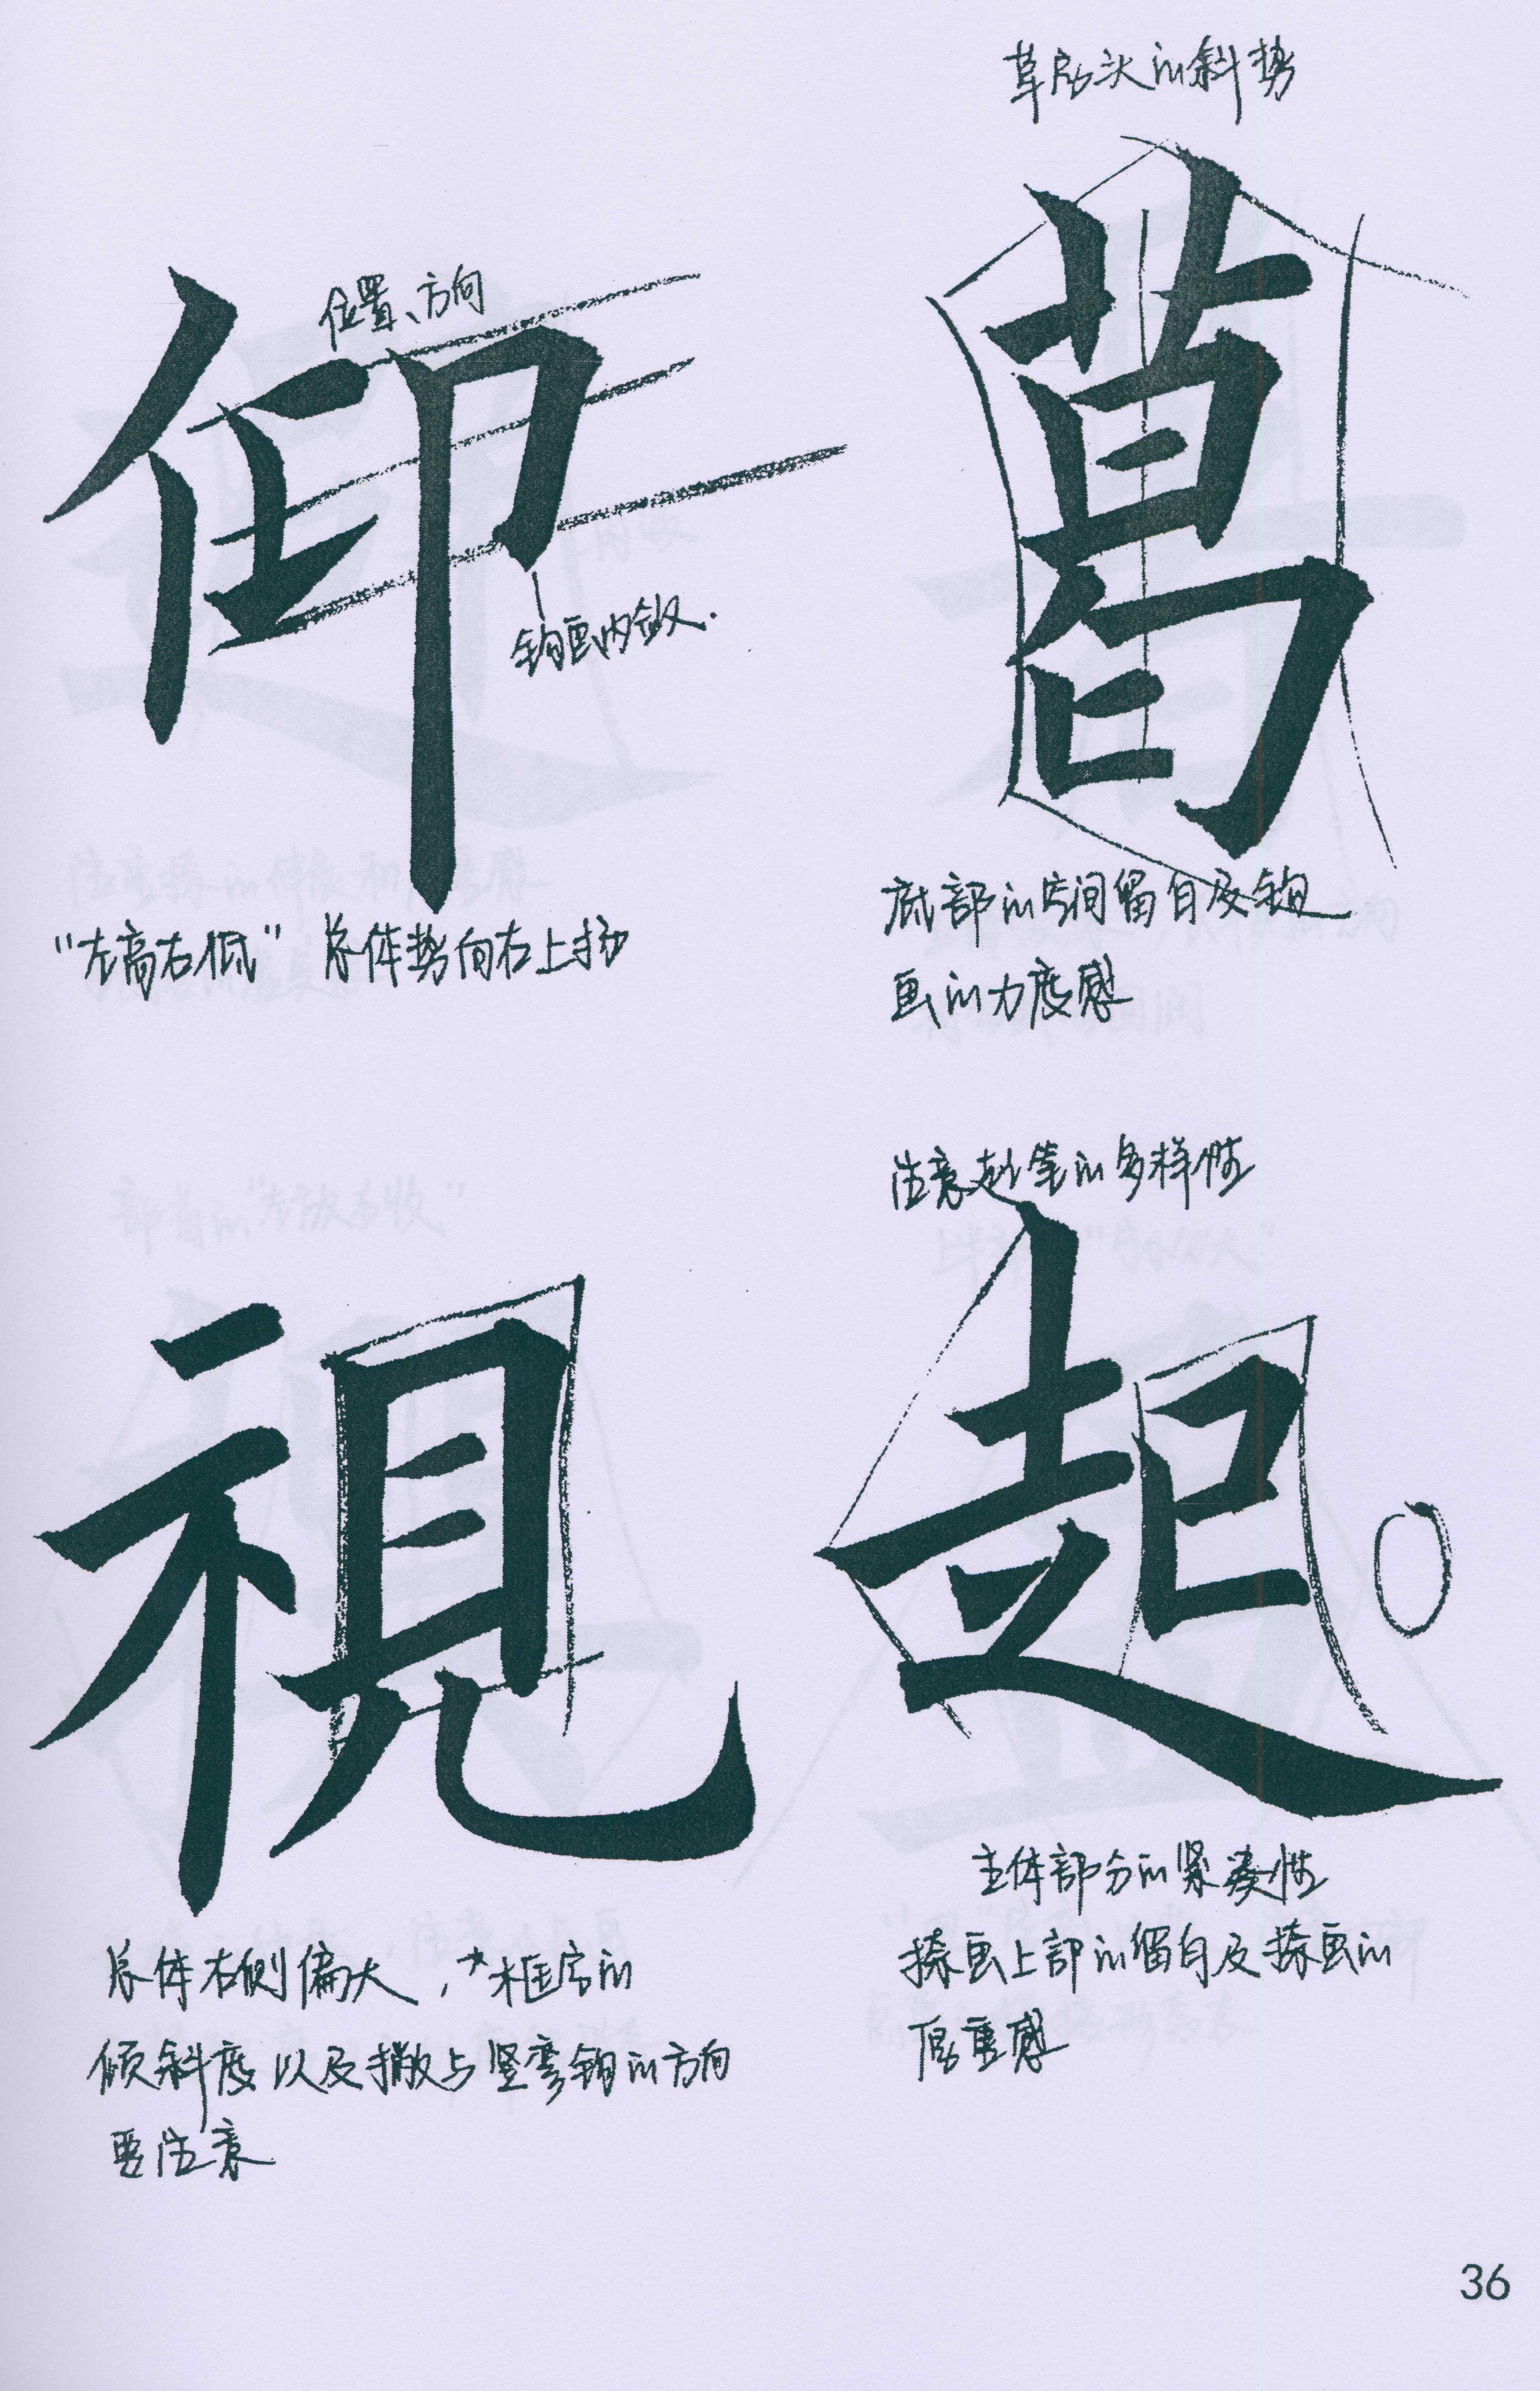 草字头的斜势
位置、方向
仰
葛
钩画内敛.
“左高右低” 总体势向右上扬
底部的空间留白及钩
画的力度感
注意起笔的多样性
視
起
主体部分的紧凑性
捺画上部的留白及捺画的
厚重感
总体右侧偏大,*框字的
倾斜度以及撇与竖弯钩的方向
要注意
36